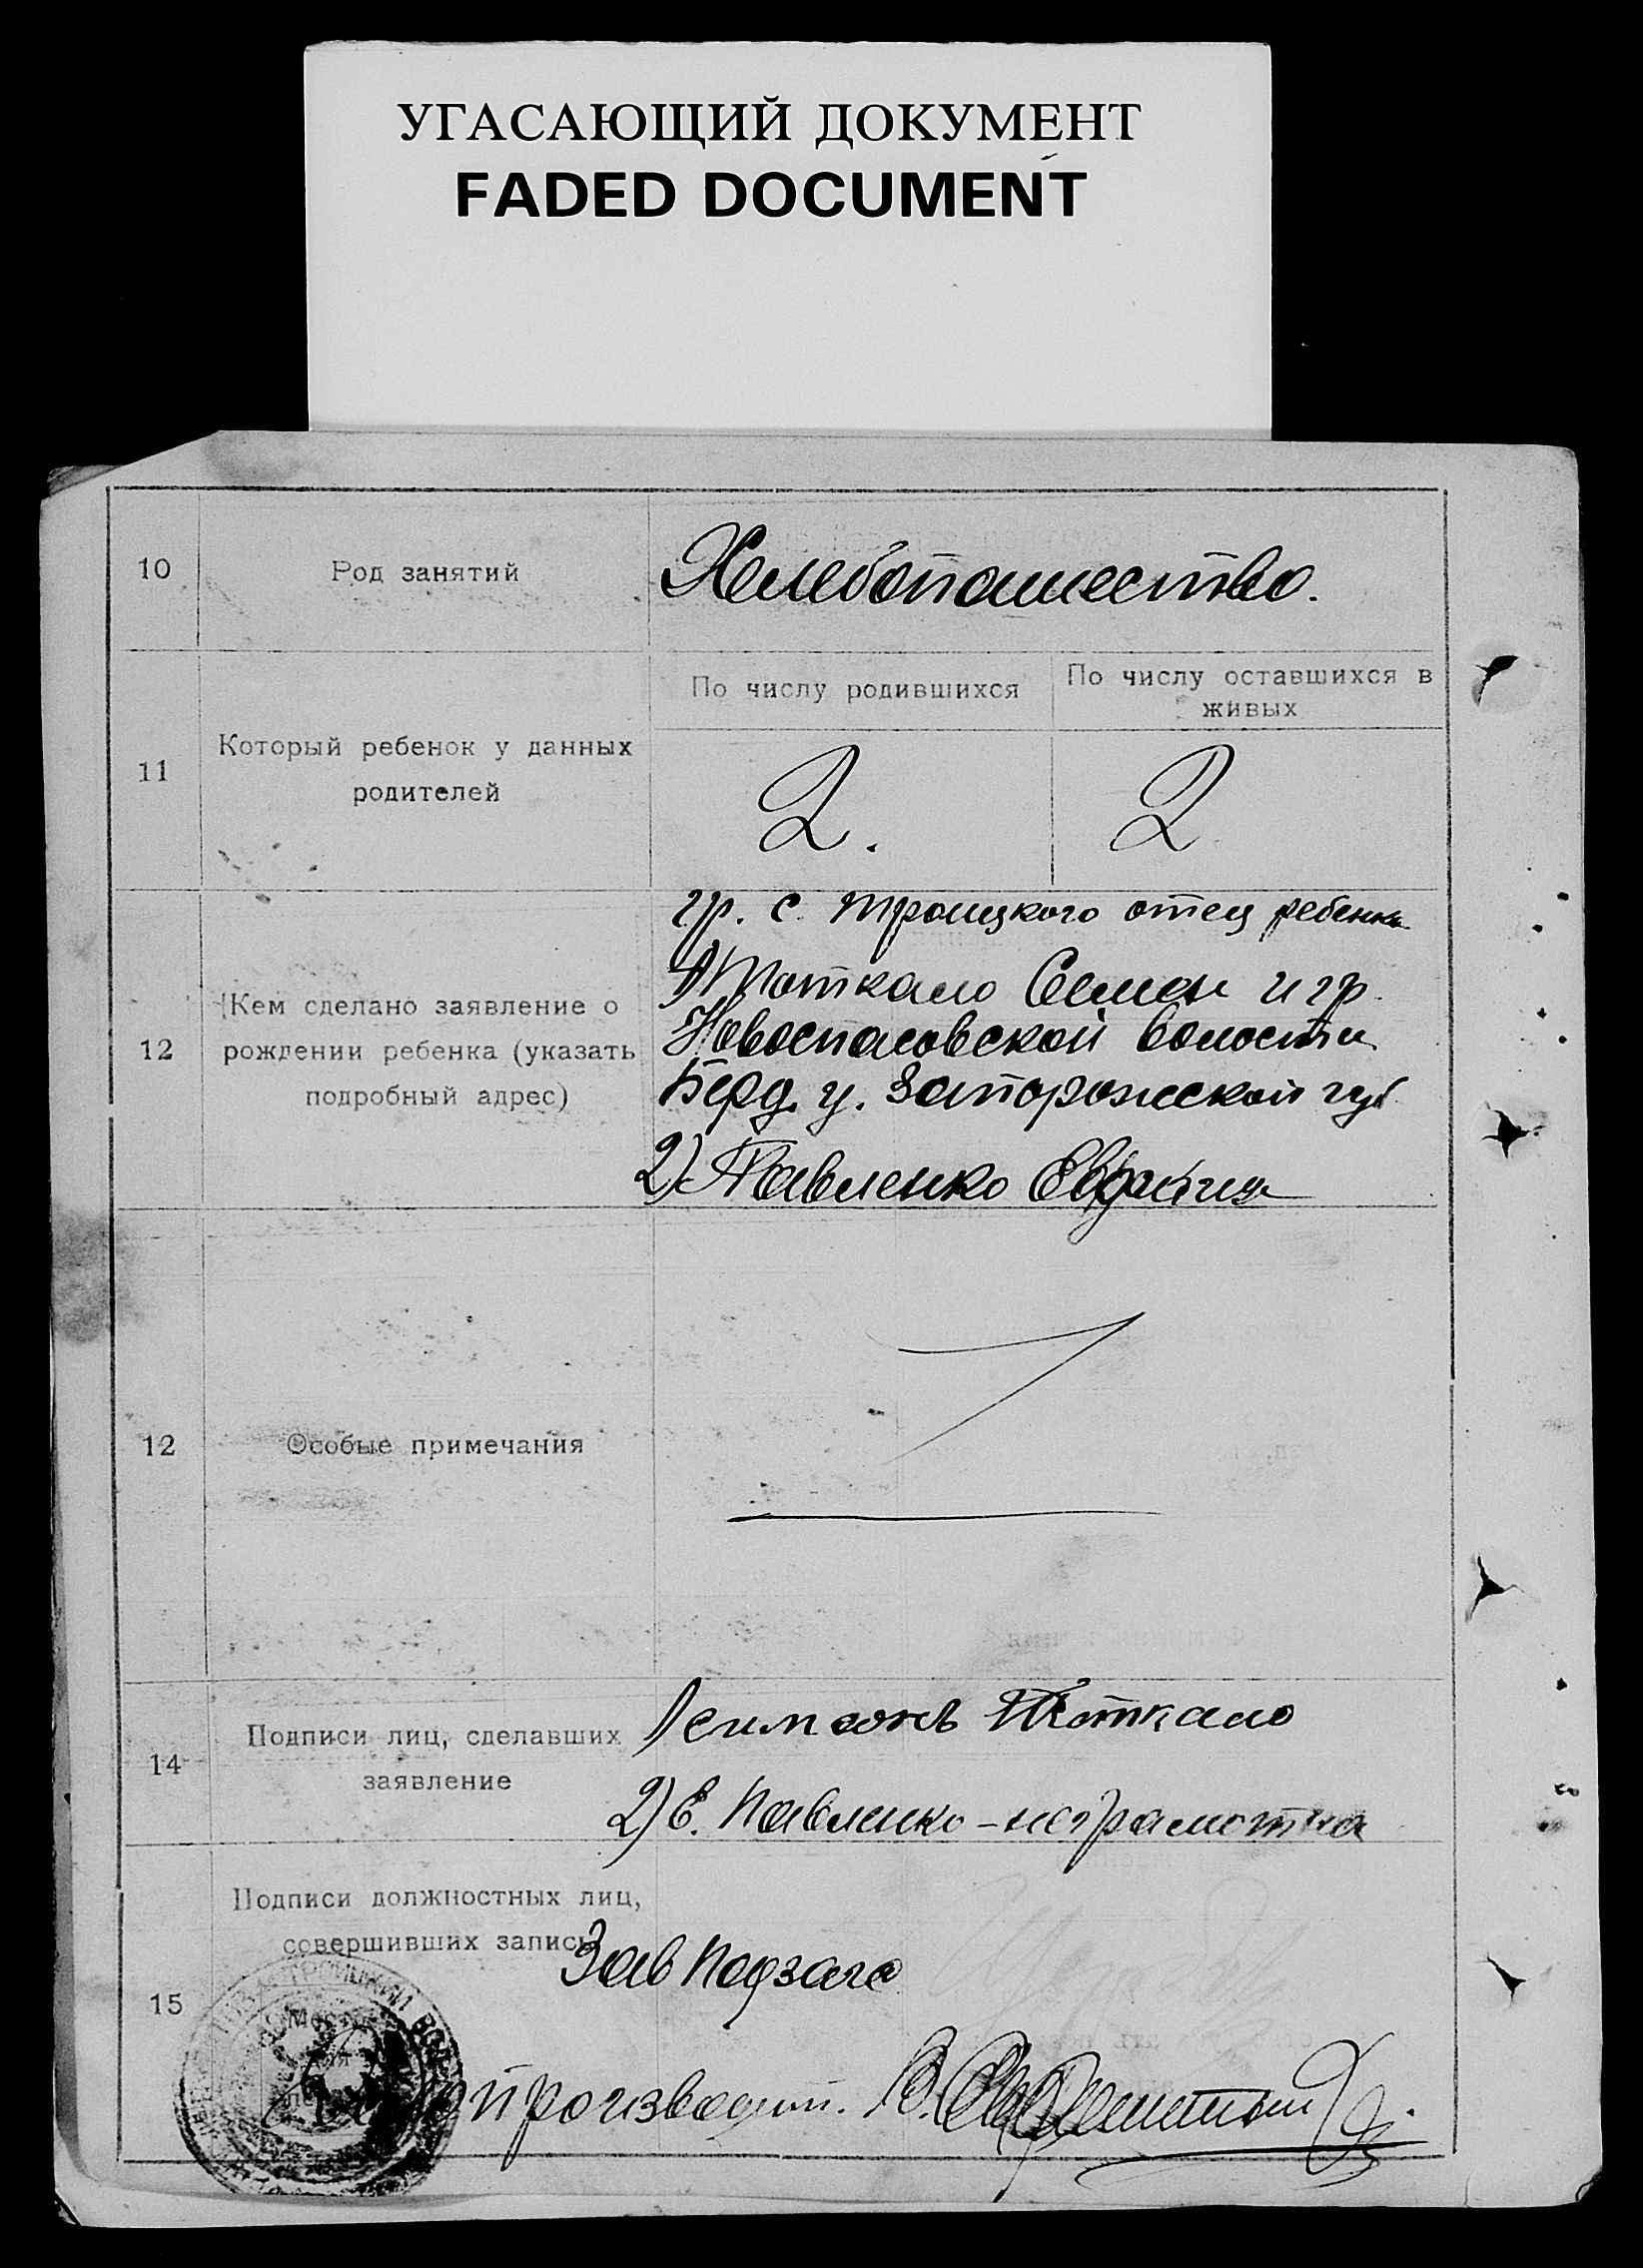 УГАСАЮЩИЙ ДОКУМЕНТ
FADED DOCUMENT
10
Род занятий
Хлебопашество.
11
Который ребенок у данных
родителей
По числу родившихся
По числу оставшихся в
живых
2.
2
12
Кем сделано заявление о
рождении ребенка (указать
подробный адрес)
гр. с. Троицкого отец ребенка
1) Поткало Семен и гр.
Новоспасовской волости
Берд. у. Запорожской губ
2) Павленко
12
Особые примечания
14
Подписи лиц, сделавших
заявление
1) Поткало
2) Е. Павленко - неграмотна
15
Подписи должностных лиц,
совершивших запись
Зав Подзагс